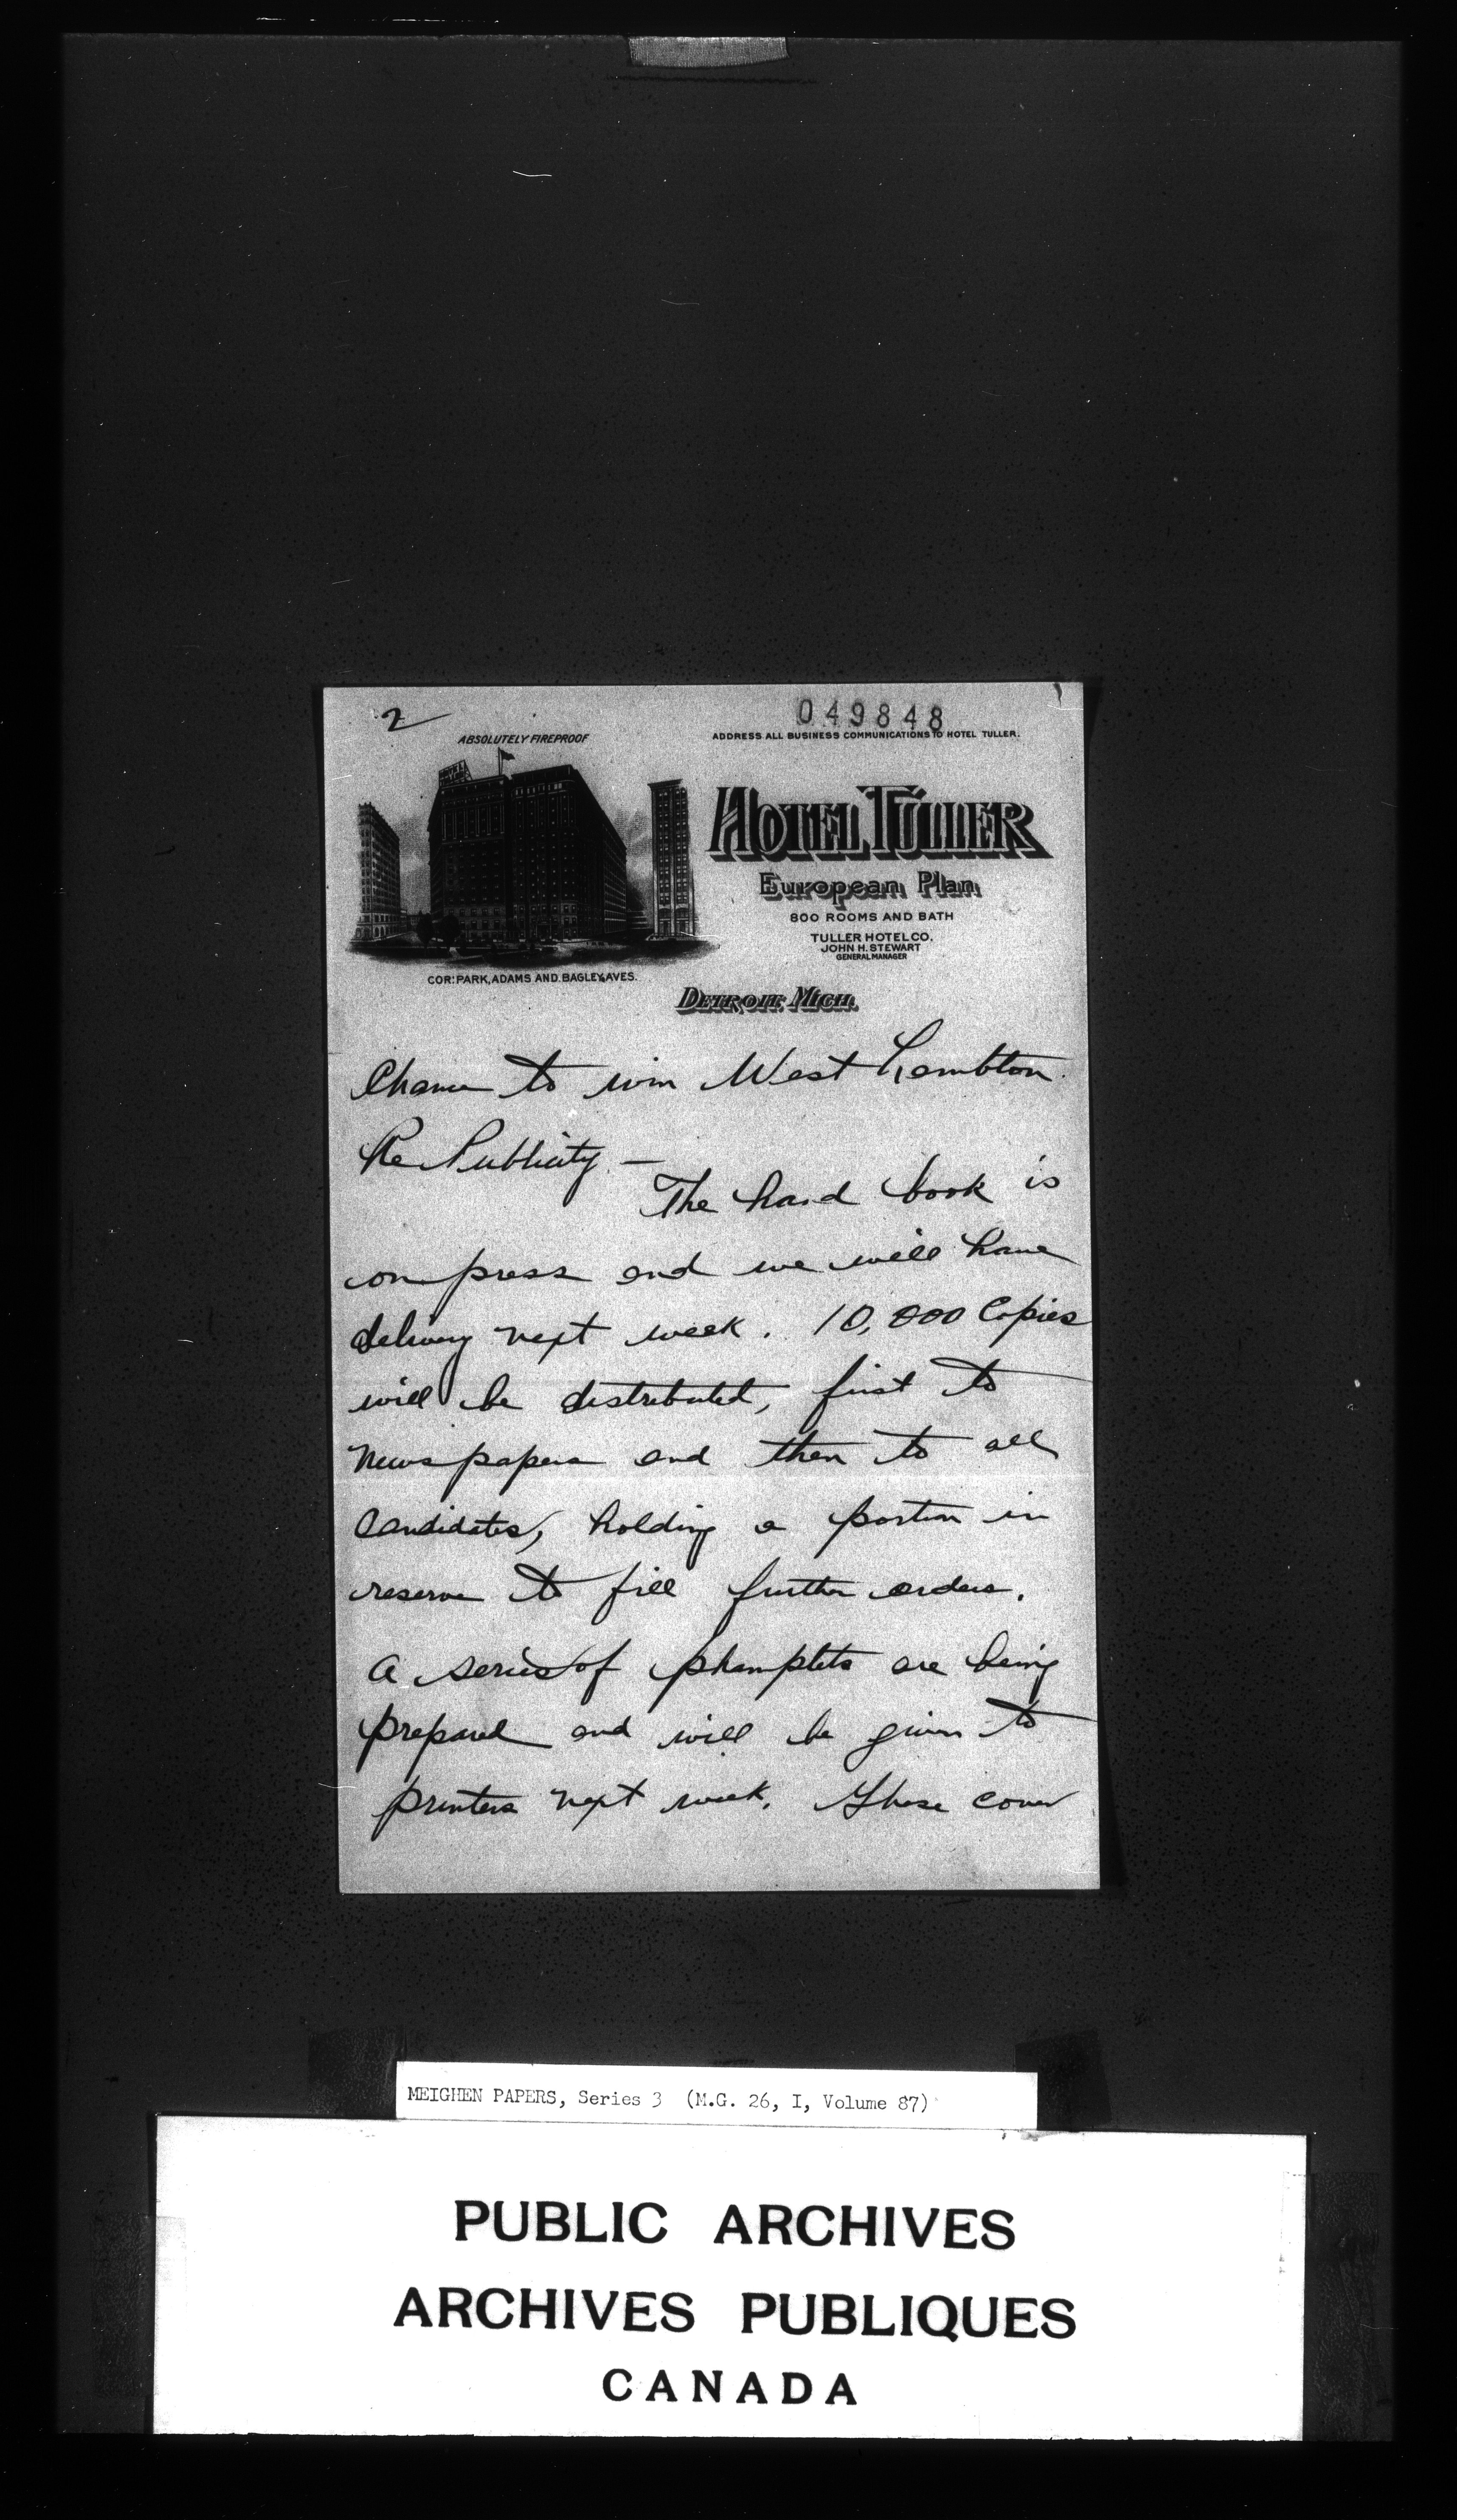 2
049848
ABSOLUTELY FIREPROOF
ADDRESS ALL BUSINESS COMMUNICATIONS TO HOTEL TULLER.
HOTEL TULLER
European Plan
800 ROOMS AND BATH
TULLER HOTEL CO.
JOHN H. STEWART
GENERAL MANAGER
COR: PARK, ADAMS AND BAGLEY AVES.
DETROIT, MICH.
Chance to win West Lambton.
Re Publicity —
The hand book is
on press and we will have
delivery next week. 10,000 Copies
will be distributed, first to
Newspapers and then to all
Candidates, holding a portion in
reserve to fill further orders.
A series of phamplets are being
prepared and will be given to
printers next week. These cover
MEIGHEN PAPERS, Series 3 (M.G. 26, I, Volume 87)
PUBLIC ARCHIVES
ARCHIVES PUBLIQUES
CANADA